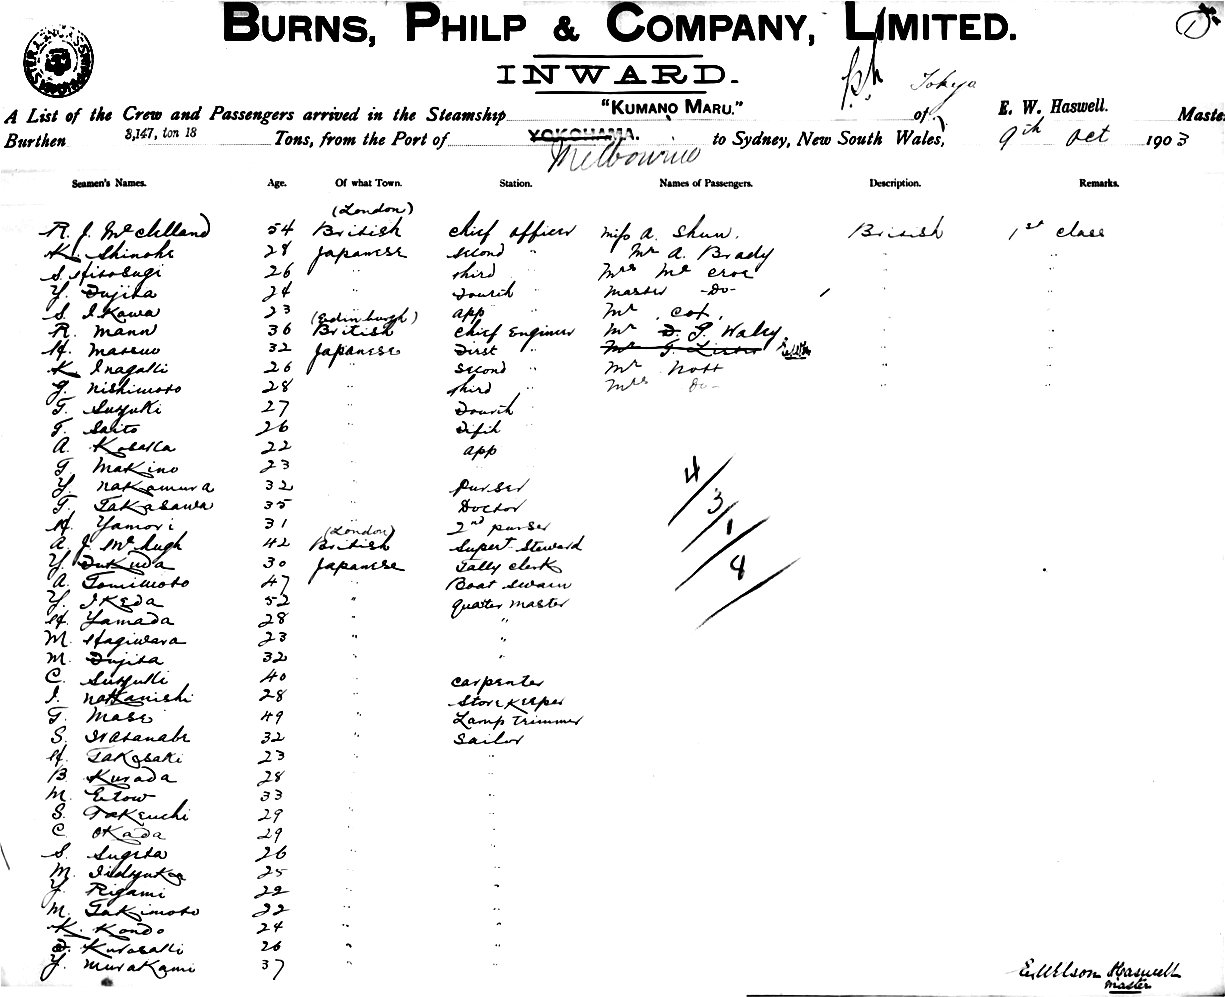 BURNS, PHILP & COMPANY, LIMITED.
INWARD.
A List of the Crew and Passengers arrived in the Steamship "KUMANO MARU." of Tokyo E. W. Haswell. Maste
Burthen 3,147, ton 18 Tons, from the Port of YOKOHAMA. Melbourne to Sydney, New South Wales, 9th Oct 1903
Seamen's Names. Age. Of what Town. Station. Names of Passengers. Description. Remarks.
(London)
R. J. McClelland 54 British chief officer Miss A. Shum. British 1st class
K. Shinohe 28 Japanese second " Mr A. Brady " "
S. Hisosugi 26 " third " Mrs Mc Croe " "
Y. Fujita 24 " Fourth " Master -Do- " "
S. Ikawa 23 " app " Mr Cox. " "
(Edinburgh)
R. Mann 36 British chief Engineer Mr D. G. Haley " "
H. Matsuo 32 Japanese First " Mr G. Lister " "
K. Inagalli 26 " second " Mr Nott " "
Y. Nishimoto 28 " third " Mrs Do- " "
T. Suzuki 27 " Fourth "
T. Saito 26 " Fifth "
A. Kosalla 22 " app
T. Makino 23 "
Y. Nakamura 32 " Purser
T. Takasawa 35 " Doctor
H. Yamori 31 " 2nd purser
(London)
A. J. McHugh 42 British Supert Steward
Y. Fukuda 30 Japanese Tally clerk
A. Tomimoto 47 " Boat swain
Y. Ikeda 52 " quater master
H. Yamada 28 " "
M. Hagiwara 23 " "
M. Fujita 32 " "
C. Suzuki 40 " carpenter
I. Nakanishi 28 " Store keeper
T. Mase 49 " Lamp trimmer
S. Watanabe 32 " Sailor
H. Takasaki 23 " "
B. Kurada 28 " "
M. Etow 33 " "
S. Takeuchi 29 " "
C. Okada 29 " "
S. Sugita 26 " "
M. 25 " "
Y. Rigami 22 " "
M. Takimoto 22 " "
K. Kondo 24 " "
Kurosalli 26 " "
Y. Murakami 37 " "
4/3/1/8
E. Wilson Haswell
Master